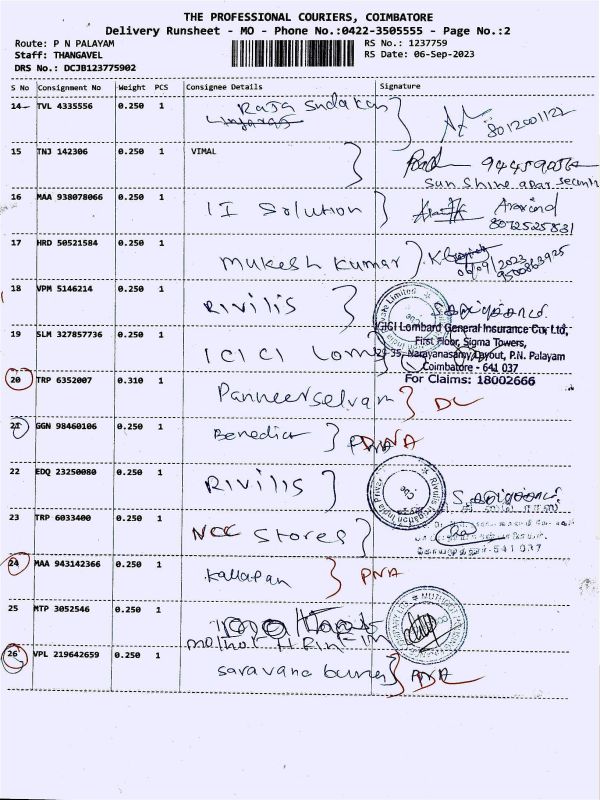 THE PROFESSIONAL COURIERS, COIMBATORE
Delivery Runsheet - MO - Phone No.:0422-3505555 - Page No.:2
Route: P N PALAYAM
Staff: THANGAVEL
DRS No.: DCJB123775902
RS No.: 1237759
RS Date: 06-Sep-2023
S No Consignment No Weight PCS Consignee Details Signature
14 TVL 4335556 0.250 1 Raja Sudakar
8012001122
15 TNJ 142306 0.250 1 VIMAL
Sun Shine apar
16 MAA 938078066 0.250 1 II Solution Aravind
8072525831
17 HRD 50521584 0.250 1 Mukesh Kumar
06/09/2023
9500863925
18 VPM 5146214 0.250 1 RIVILIS
19 SLM 327857736 0.250 1 ICICI Lom
ICICI Lombard General Insurance Co. Ltd,
First Floor, Sigma Towers,
Narayanasamy Layout, P.N. Palayam
Coimbatore - 641 037
For Claims: 18002666
20 TRP 6352007 0.310 1 Panneerselvam DL
21 GGN 98460106 0.250 1 Benedict
22 EDQ 23250080 0.250 1 RIVILIS
23 TRP 6033400 0.250 1 NCC Stores
24 MAA 943142366 0.250 1 Kaliapan PNA
25 MTP 3052546 0.250 1
26 VPL 219642659 0.250 1